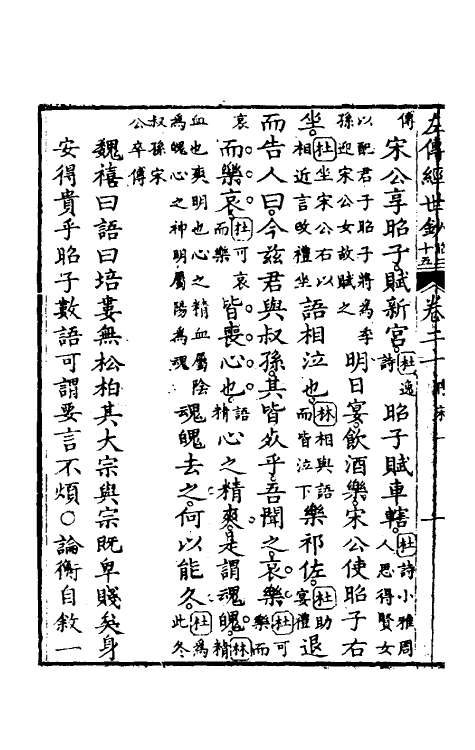 左傳經世鈔 卷二十
傳 宋公享昭子賦新宮杜逸詩昭子賦車轄杜詩小雅周人思得賢女
以配君子昭子將為季孫迎宋公女故賦之明日宴飲酒樂宋公使昭子右
坐杜坐宋公右以相近言改禮坐語相泣也林相與語而皆泣下樂祁佐杜助宴禮退
而告人曰今茲君與叔孫其皆死乎吾聞之哀樂可樂而
哀而樂哀杜可哀而樂皆喪心也語心之精爽是謂魂魄林精
血也爽明也心之精血屬陰為魄心之神明屬陽為魂魂魄去之何以能久杜為此冬
叔孫宋公卒傳
魏禧曰語曰培塿無松柏其大宗與宗既卑賤矣身
安得貴乎昭子數語可謂要言不煩○論衡自敘一